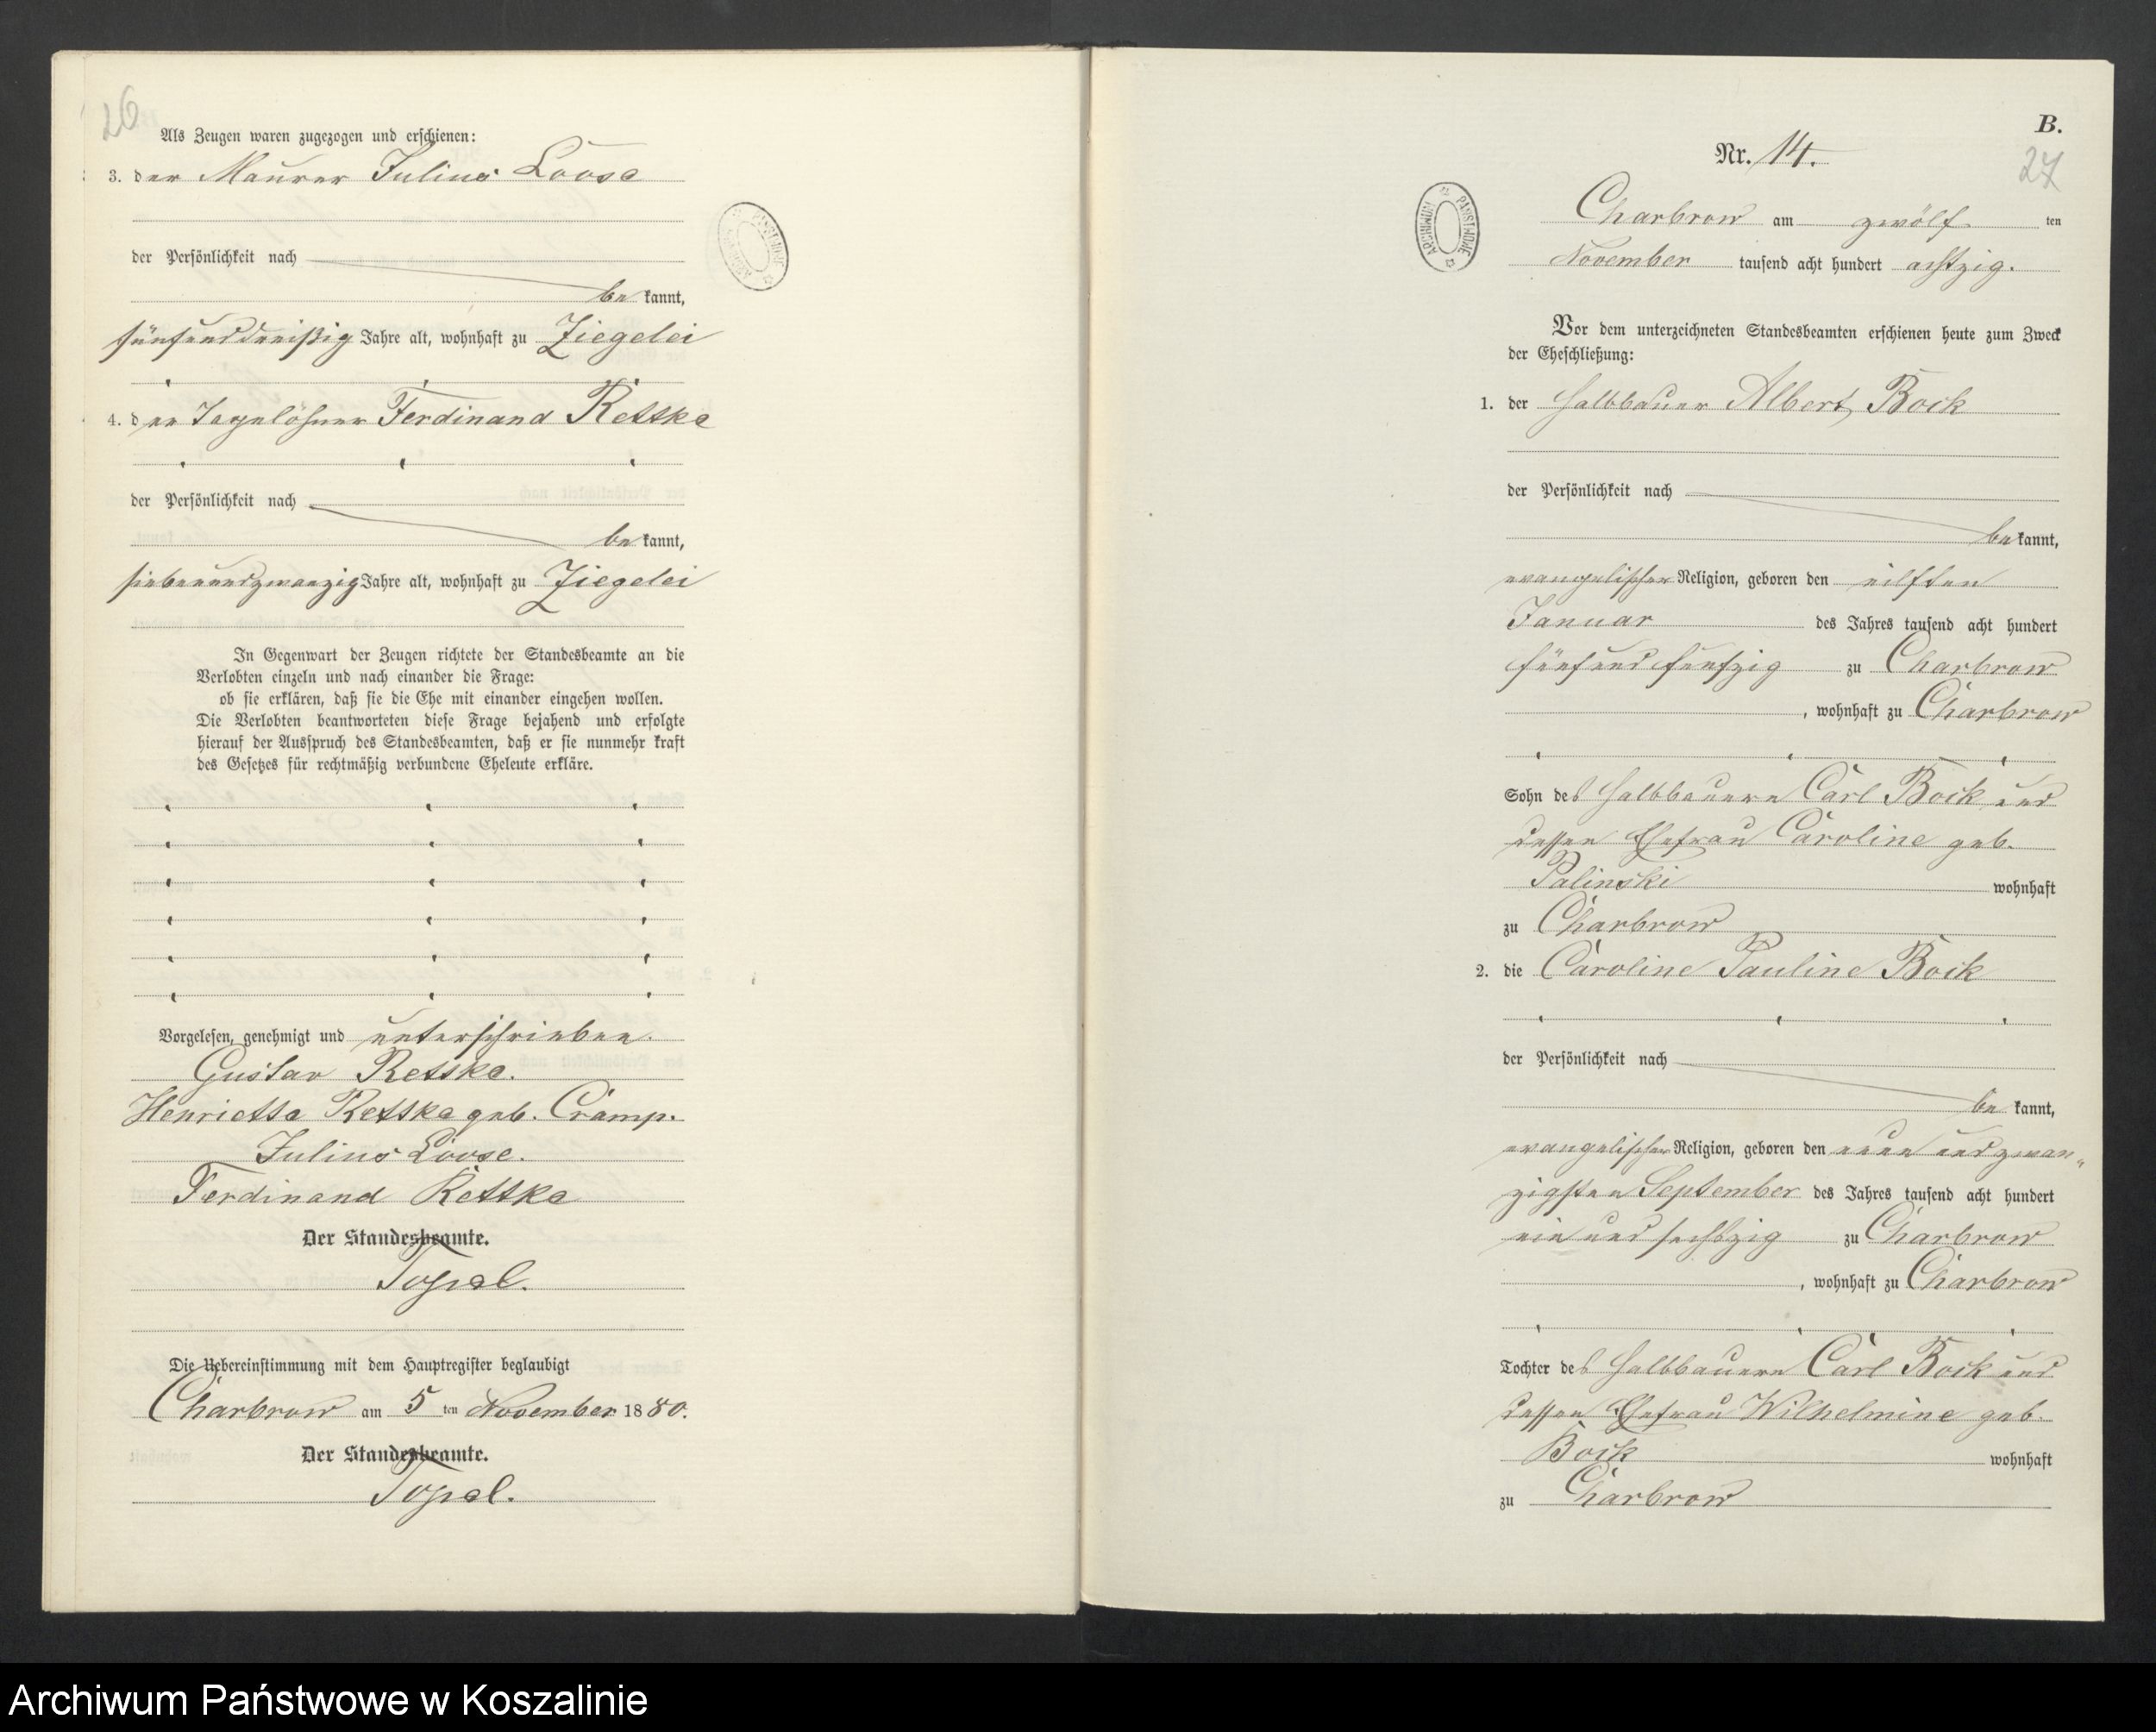 26
Als Zeugen waren zugezogen und erschienen:
3. der Maurer Julius Loose
der Persönlichkeit nach
bekannt,
fünfunddreißig Jahre alt, wohnhaft zu Ziegelei
4. der Tagelöhner Ferdinand Rettke
der Persönlichkeit nach
bekannt,
siebenundzwanzig Jahre alt, wohnhaft zu Ziegelei
In Gegenwart der Zeugen richtete der Standesbeamte an die
Verlobten einzeln und nach einander die Frage:
ob sie erklären, daß sie die Ehe mit einander eingehen wollen.
Die Verlobten beantworteten diese Frage bejahend und erfolgte
hierauf der Ausspruch des Standesbeamten, daß er sie nunmehr kraft
des Gesetzes für rechtmäßig verbundene Eheleute erkläre.
Vorgelesen, genehmigt und unterschrieben.
Gustav Rettke.
Henriette Rettke geb. Cramp.
Julius Loose.
Ferdinand Rettke
Der Standesbeamte.
Die Uebereinstimmung mit dem Hauptregister beglaubigt
Charbrow am 5ten November 1880.
Der Standesbeamte.
ARCHIWUM PAŃSTWOWE
B.
Nr. 14.
27
ARCHIWUM PAŃSTWOWE
Charbrow am zwölf ten
November tausend acht hundert achtzig.
Vor dem unterzeichneten Standesbeamten erschienen heute zum Zweck
der Eheschließung:
1. der Halbbauer Albert Bock
der Persönlichkeit nach
bekannt,
evangelischer Religion, geboren den eilften
Januar des Jahres tausend acht hundert
fünf und funfzig zu Charbrow
, wohnhaft zu Charbrow
Sohn des Halbbauern Carl Bock und
dessen Ehefrau Caroline geb.
Palinski wohnhaft
zu Charbrow
2. die Caroline Pauline Bock
der Persönlichkeit nach
bekannt,
evangelischer Religion, geboren den neun und zwan„
zigsten September des Jahres tausend acht hundert
ein und sechszig zu Charbrow
, wohnhaft zu Charbrow
Tochter des Halbbauern Carl Bock und
dessen Ehefrau Wilhelmine geb.
Bock wohnhaft
zu Charbrow
Archiwum Państwowe w Koszalinie